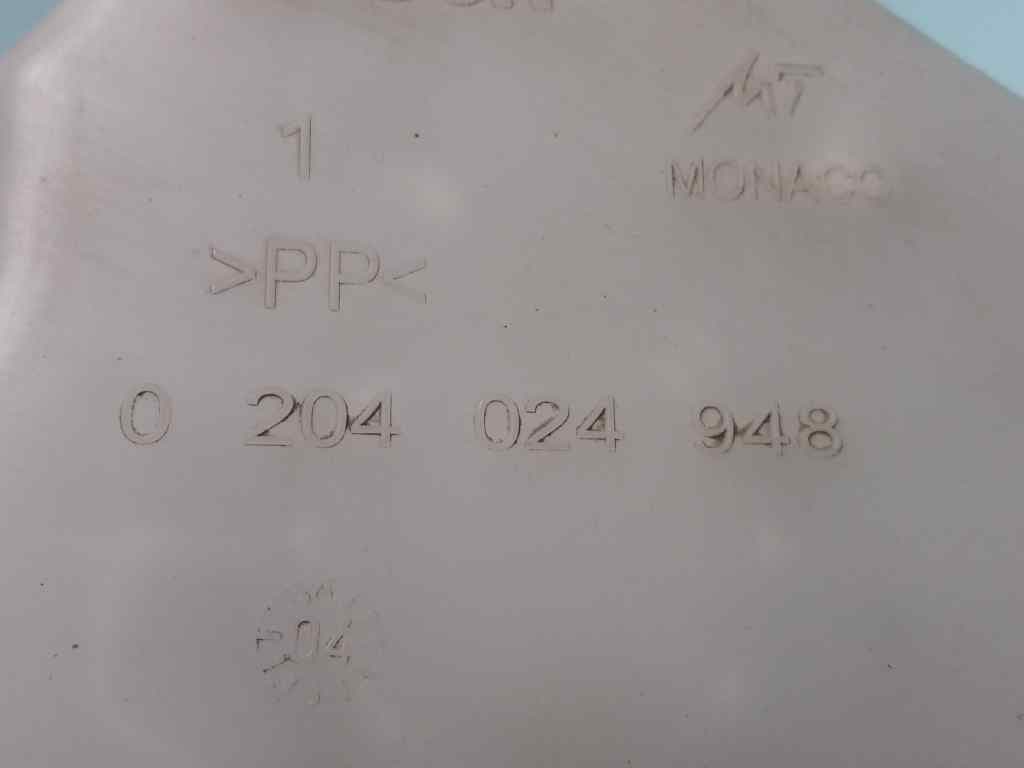 1
MT
MONACO
>PP<
0 204 024 948
04